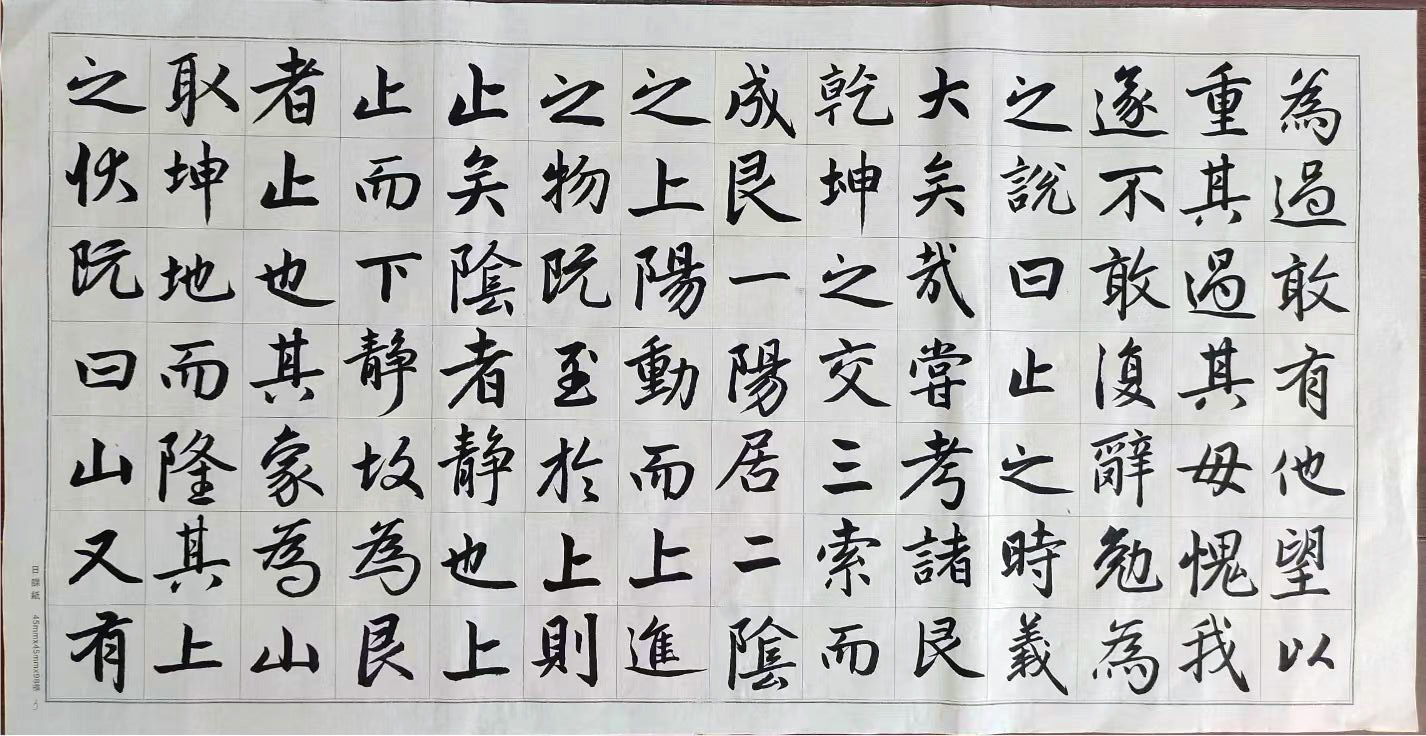 為過敢有他望以
重其過其毋愧我
遂不敢復辭勉為
之說曰止之時義
大矣哉嘗考諸艮
乾坤之交三索而
成艮一陽居二陰
之上陽動而上進
之物既至於上則
止矣陰者靜也上
止而下靜故為艮
者止也其象為山
取坤地而隆其上
之状既曰山又有
日課紙 45mmx45mmx98格